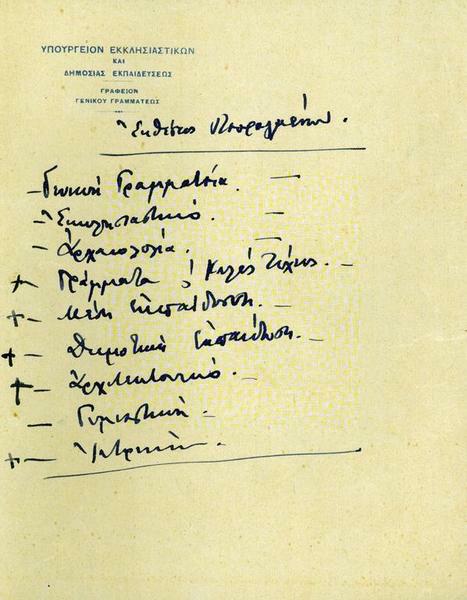 ΥΠΟΥΡΓΕΙΟΝ ΕΚΚΛΗΣΙΑΣΤΙΚΩΝ
ΚΑΙ
ΔΗΜΟΣΙΑΣ ΕΚΠΑΙΔΕΥΣΕΩΣ
ΓΡΑΦΕΙΟΝ
ΓΕΝΙΚΟΥ ΓΡΑΜΜΑΤΕΩΣ
Ἐκθέσεις
– Γενική Γραμματεία. –
– Ἐκκλησιαστικό. –
– Ἀρχαιολογία. –
+ – Γράμματα & Καλές Τέχνες. –
+ – Μέση Ἐκπαίδευση. –
+ – Δημοτική Ἐκπαίδευση. –
+ – Ἀρχιτεκτονικό. –
– Γυμναστική. –
+ – Ἰατρική. –